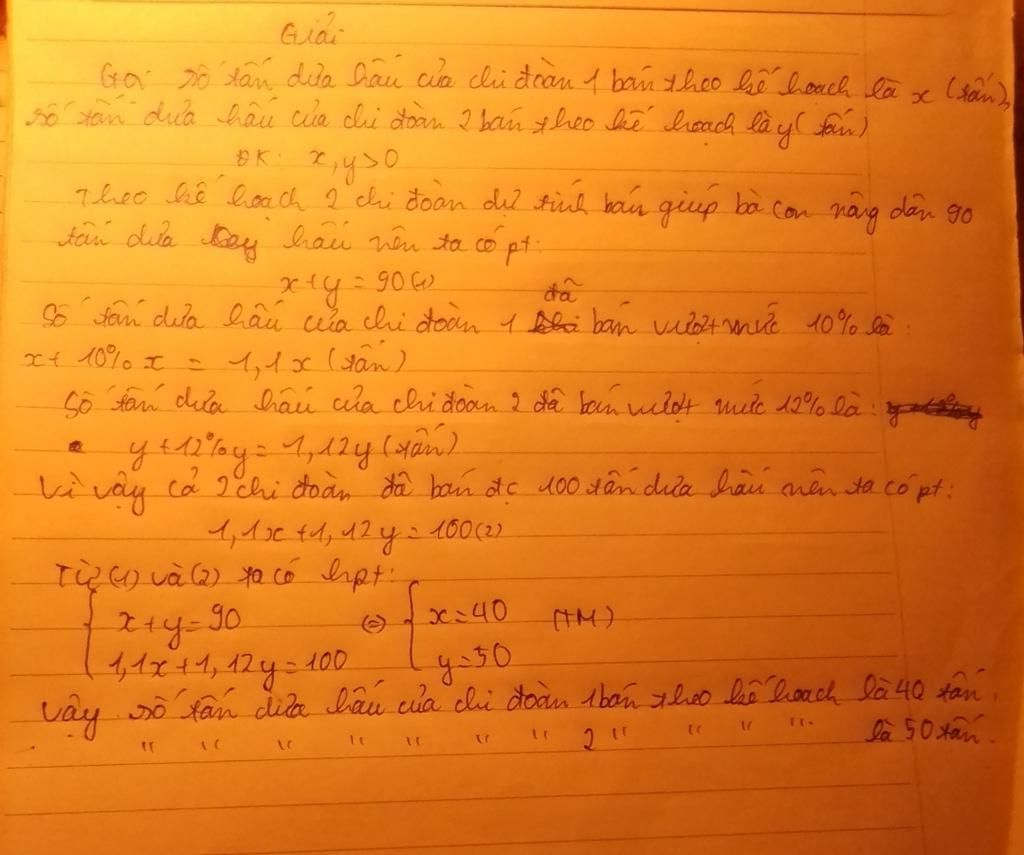 Giải
Gọi số tấn dưa hấu của chi đoàn 1 bán theo kế hoạch là x (tấn),
số tấn dưa hấu của chi đoàn 2 bán theo kế hoạch là y (tấn)
ĐK: x, y > 0
Theo kế hoạch 2 chi đoàn dự tính bán giúp bà con nông dân 90
tấn dưa hấu nên ta có pt:
x + y = 90 (1)
Số tấn dưa hấu của chi đoàn 1 đã bán vượt mức 10% là:
x + 10% x = 1,1x (tấn)
Số tấn dưa hấu của chi đoàn 2 đã bán vượt mức 12% là: y + 12% y
y + 12% y = 1,12y (tấn)
Vì vậy cả 2 chi đoàn đã bán đc 100 tấn dưa hấu nên ta có pt:
1,1x + 1,12y = 100 (2)
Từ (1) và (2) ta có hpt:
{ x + y = 90 ⇔ { x = 40 (TM)
1,1x + 1,12y = 100 y = 50
Vậy số tấn dưa hấu của chi đoàn 1 bán theo kế hoạch là 40 tấn.
" " " " " " " 2 " " " " là 50 tấn.